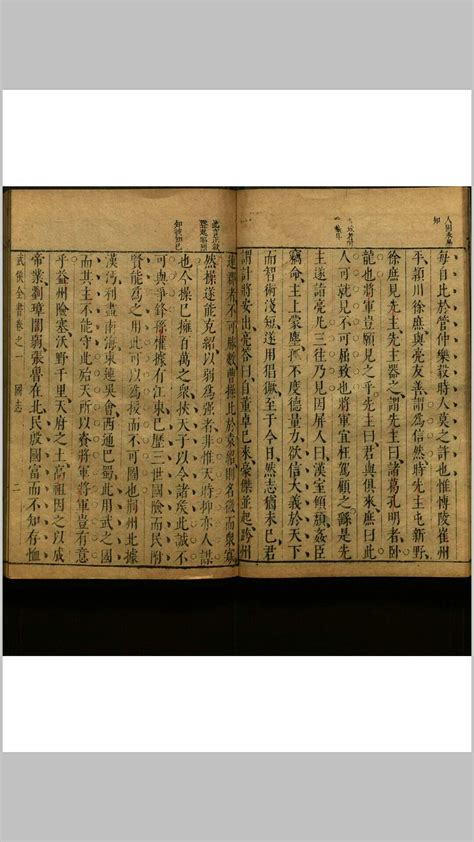 每自比於管仲樂毅時人莫之許也惟博陵崔州
平潁川徐庶與亮友善謂為信然時先主屯新野
徐庶見先主先主器之謂先主曰諸葛孔明者臥
龍也將軍豈願見之乎先主曰君與俱來庶曰此
人可就見不可屈致也將軍宜枉駕顧之繇是先
主遂詣亮凡三往乃見因屏人曰漢室傾頹姦臣
竊命主上蒙塵孤不度德量力欲信大義於天下
而智術淺短遂用猖獗至于今日然志猶未已君
謂計將安出亮答曰自董卓已來豪傑並起跨州
連郡者不可勝數曹操比於袁紹則名微而衆寡
然操遂能克紹以弱為強者非惟天時抑亦人謀
也今操已擁百萬之衆挾天子以令諸侯此誠不
可與爭鋒孫權據有江東已歷三世國險而民附
賢能為之用此可以為援而不可圖也荊州北據
漢沔利盡南海東連吳會西通巴蜀此用武之國
而其主不能守此殆天所以資將軍將軍豈有意
乎益州險塞沃野千里天府之土高祖因之以成
帝業劉璋闇弱張魯在北民殷國富而不知存恤
武侯全書卷之一 國志 二
知彼知己